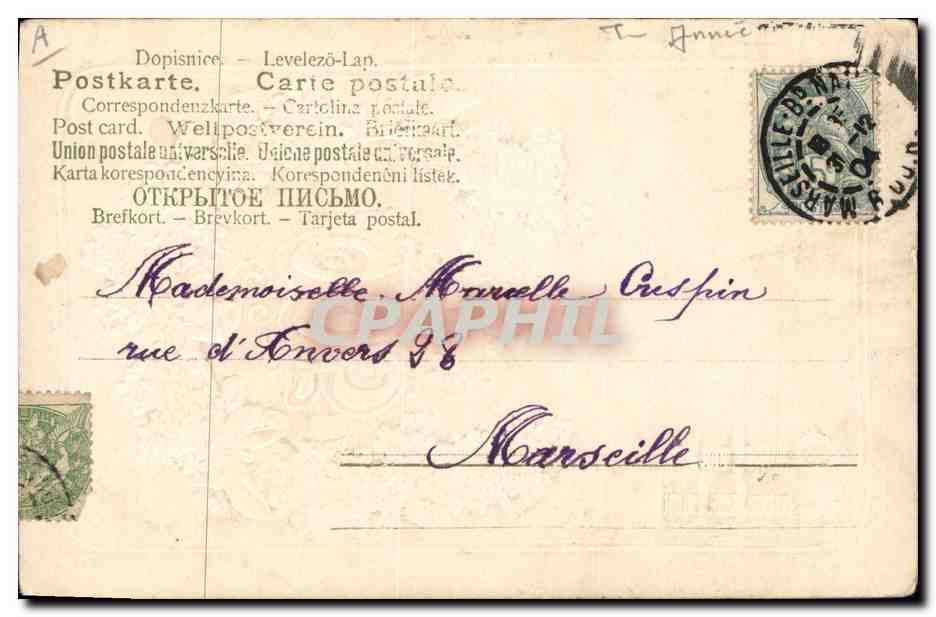 A
Année
Dopisnice. – Levelező-Lap.
Postkarte. Carte postale.
Correspondenzkarte. – Cartolina postale.
Post card. Weltpostverein. Briefkaart.
Union postale universelle. Unione postale universale.
Karta korespondencyjna. Korespondenční lístek.
ОТКРЫТОЕ ПИСЬМО.
Brefkort. – Brevkort. – Tarjeta postal.
MARSEILLE
31 12
04
Mademoiselle Marcelle Crespin
CPAPHIL
rue d'Anvers 28
Marseille